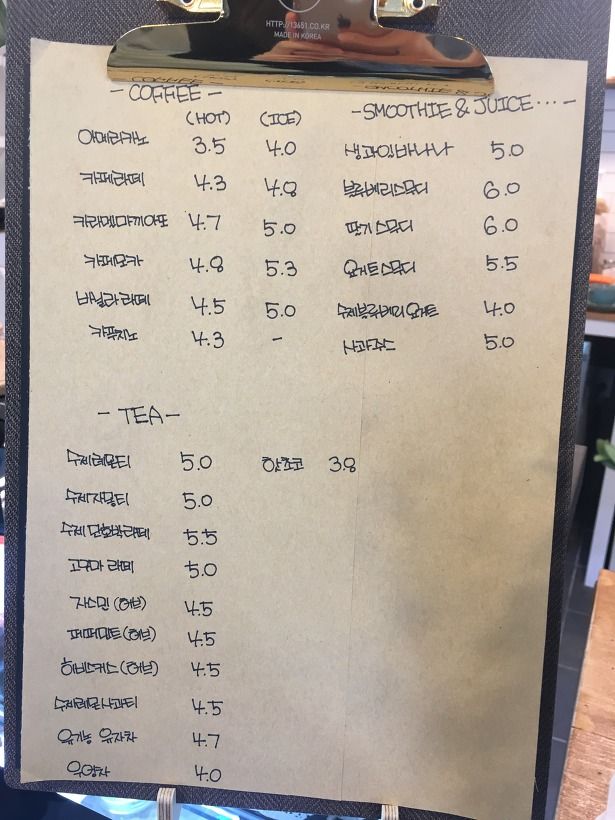 HTTP://13651.CO.KR
MADE IN KOREA
- COFFEE -
(HOT) (ICE)
아메리카노 3.5 4.0
카페라떼 4.3 4.8
카라멜마끼아또 4.7 5.0
카페모카 4.8 5.3
바닐라라떼 4.5 5.0
카푸치노 4.3 -
- SMOOTHIE & JUICE ... -
생과일바나나 5.0
블루베리스무디 6.0
딸기스무디 6.0
요거트스무디 5.5
수제블루베리요거트 4.0
사과쥬스 5.0
- TEA -
수제레몬티 5.0 핫초코 3.8
수제자몽티 5.0
수제단호박라떼 5.5
고구마라떼 5.0
자스민(허브) 4.5
페퍼민트(허브) 4.5
히비스커스(허브) 4.5
수제레몬사과티 4.5
유기농 유자차 4.7
우엉차 4.0